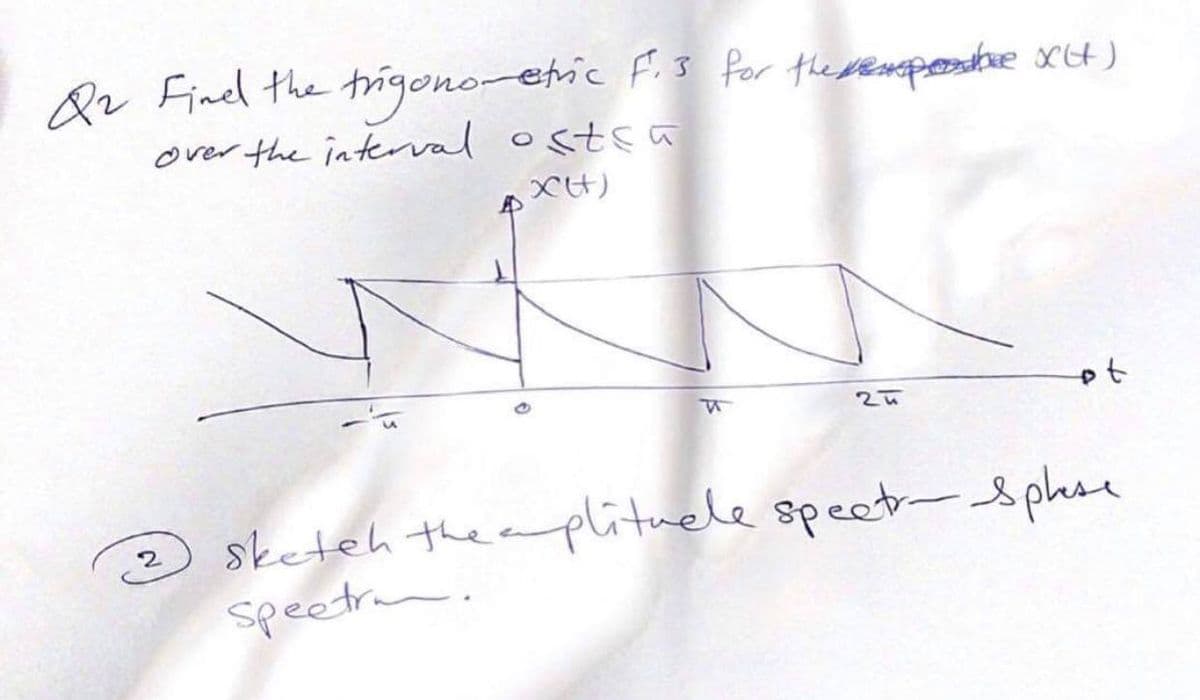 Q2 Find the trigonometric F.S for the x(t)
over the interval 0 ≤ t ≤ π
x(t)
1
-π 0 π 2π t
2 sketch the amplitude spectrum & phase
spectrum.